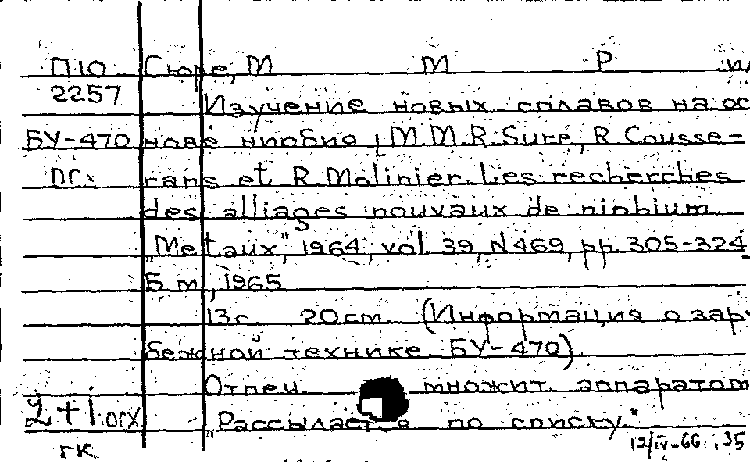 П10 Сюре, М М Р и
2257 Изучение новых сплавов на ос
БУ-470 нове ниобию, M.M.R.Sure, R Cousse-
ОГХ rans et R.Molinier. Les recherches
des alliages nouvaux de niobium
„Metaux", 1964, vol. 39, N469, pp. 305-324
Б м, 1965
13с 20см. (Информация о зару
бежной технике БУ-470).
Отпеч. множит. аппаратом
2+1огх „Рассылается по списку."
гк 12/IV-66 35